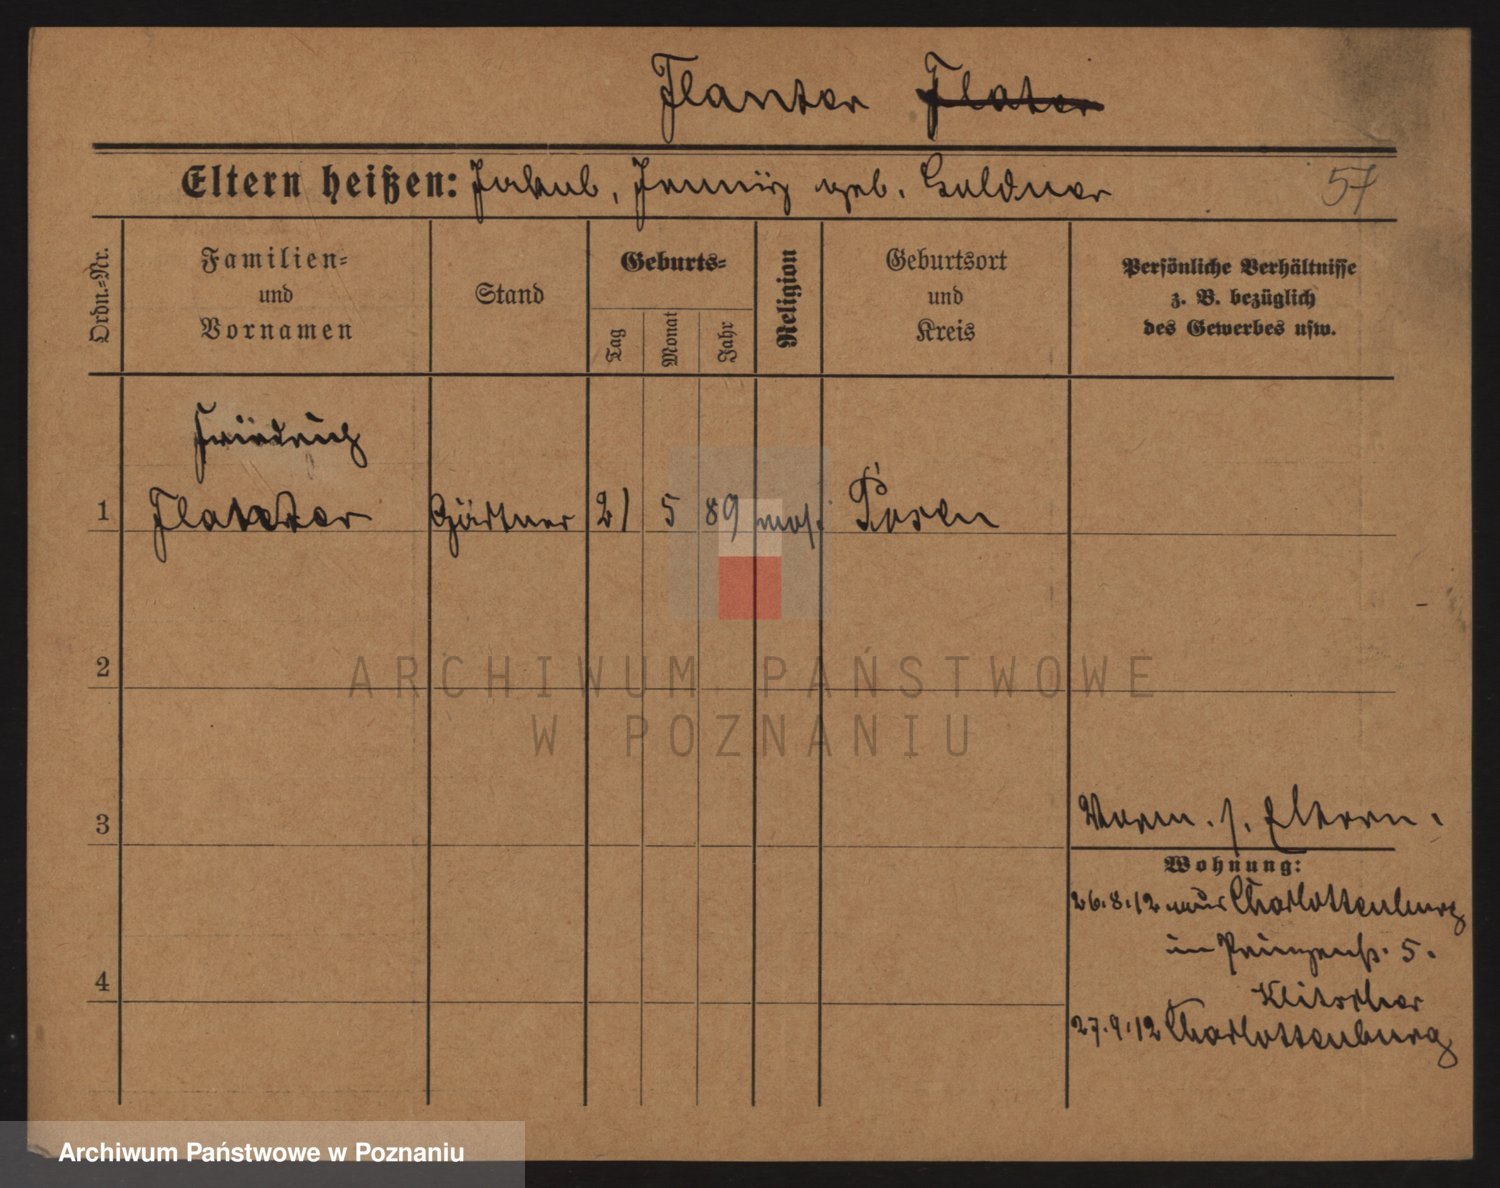 Flanter Flater
Eltern heißen: Jakob, Jenny geb. Goldner
57
Ordn.-Nr.
Familien-
und
Vornamen
Stand
Geburts-
Tag
Monat
Jahr
Religion
Geburtsort
und
Kreis
Persönliche Verhältnisse
z. B. bezüglich
des Gewerbes usw.
Friedrich
1 Flanter Gärtner 21 5 89 mos. Posen
2
ARCHIWUM PAŃSTWOWE
W POZNANIU
3
Verm. s. Eltern.
Wohnung:
26.8.12 aus Charlottenburg
in Prinzenstr. 5.
4
27.9.12 Charlottenburg
Archiwum Państwowe w Poznaniu